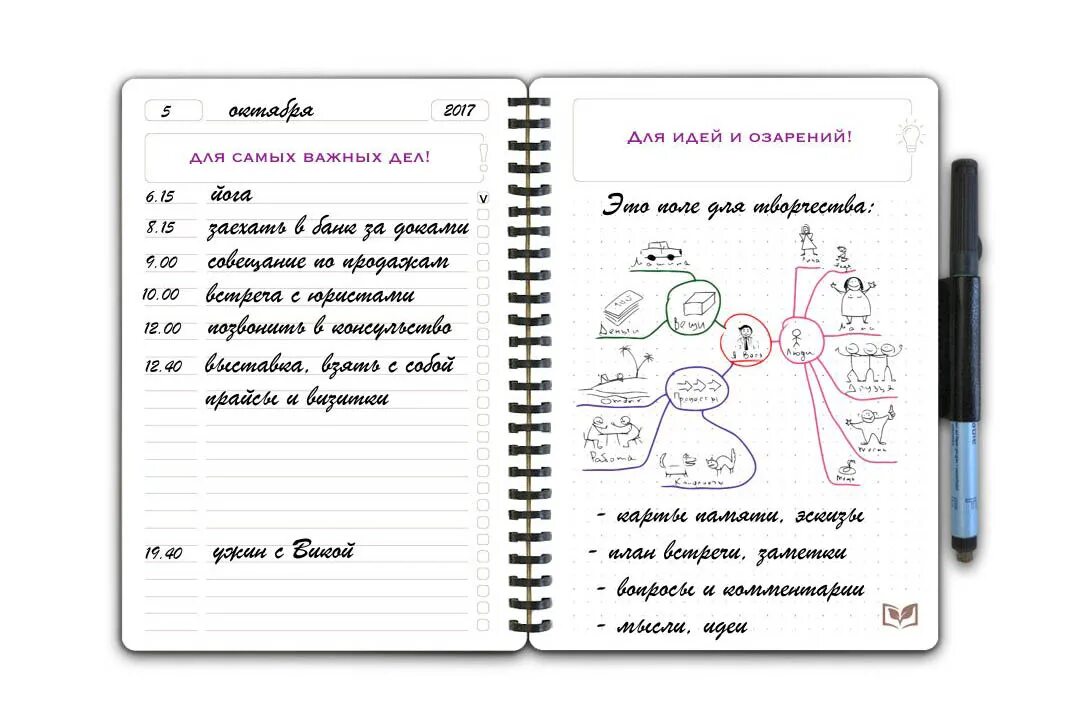 5 октября 2017
ДЛЯ САМЫХ ВАЖНЫХ ДЕЛ!
6.15 йога v
8.15 заехать в банк за доками
9.00 совещание по продажам
10.00 встреча с юристами
12.00 позвонить в консульство
12.40 выставка, взять с собой
прайсы и визитки
19.40 ужин с Викой
ДЛЯ ИДЕЙ И ОЗАРЕНИЙ!
Это поле для творчества:
Машина
Деньги
Вещи
Я
Люди
Мама
Друзья
Отдых
Процессы
Работа
- карты памяти, эскизы
- план встречи, заметки
- вопросы и комментарии
- мысли, идеи